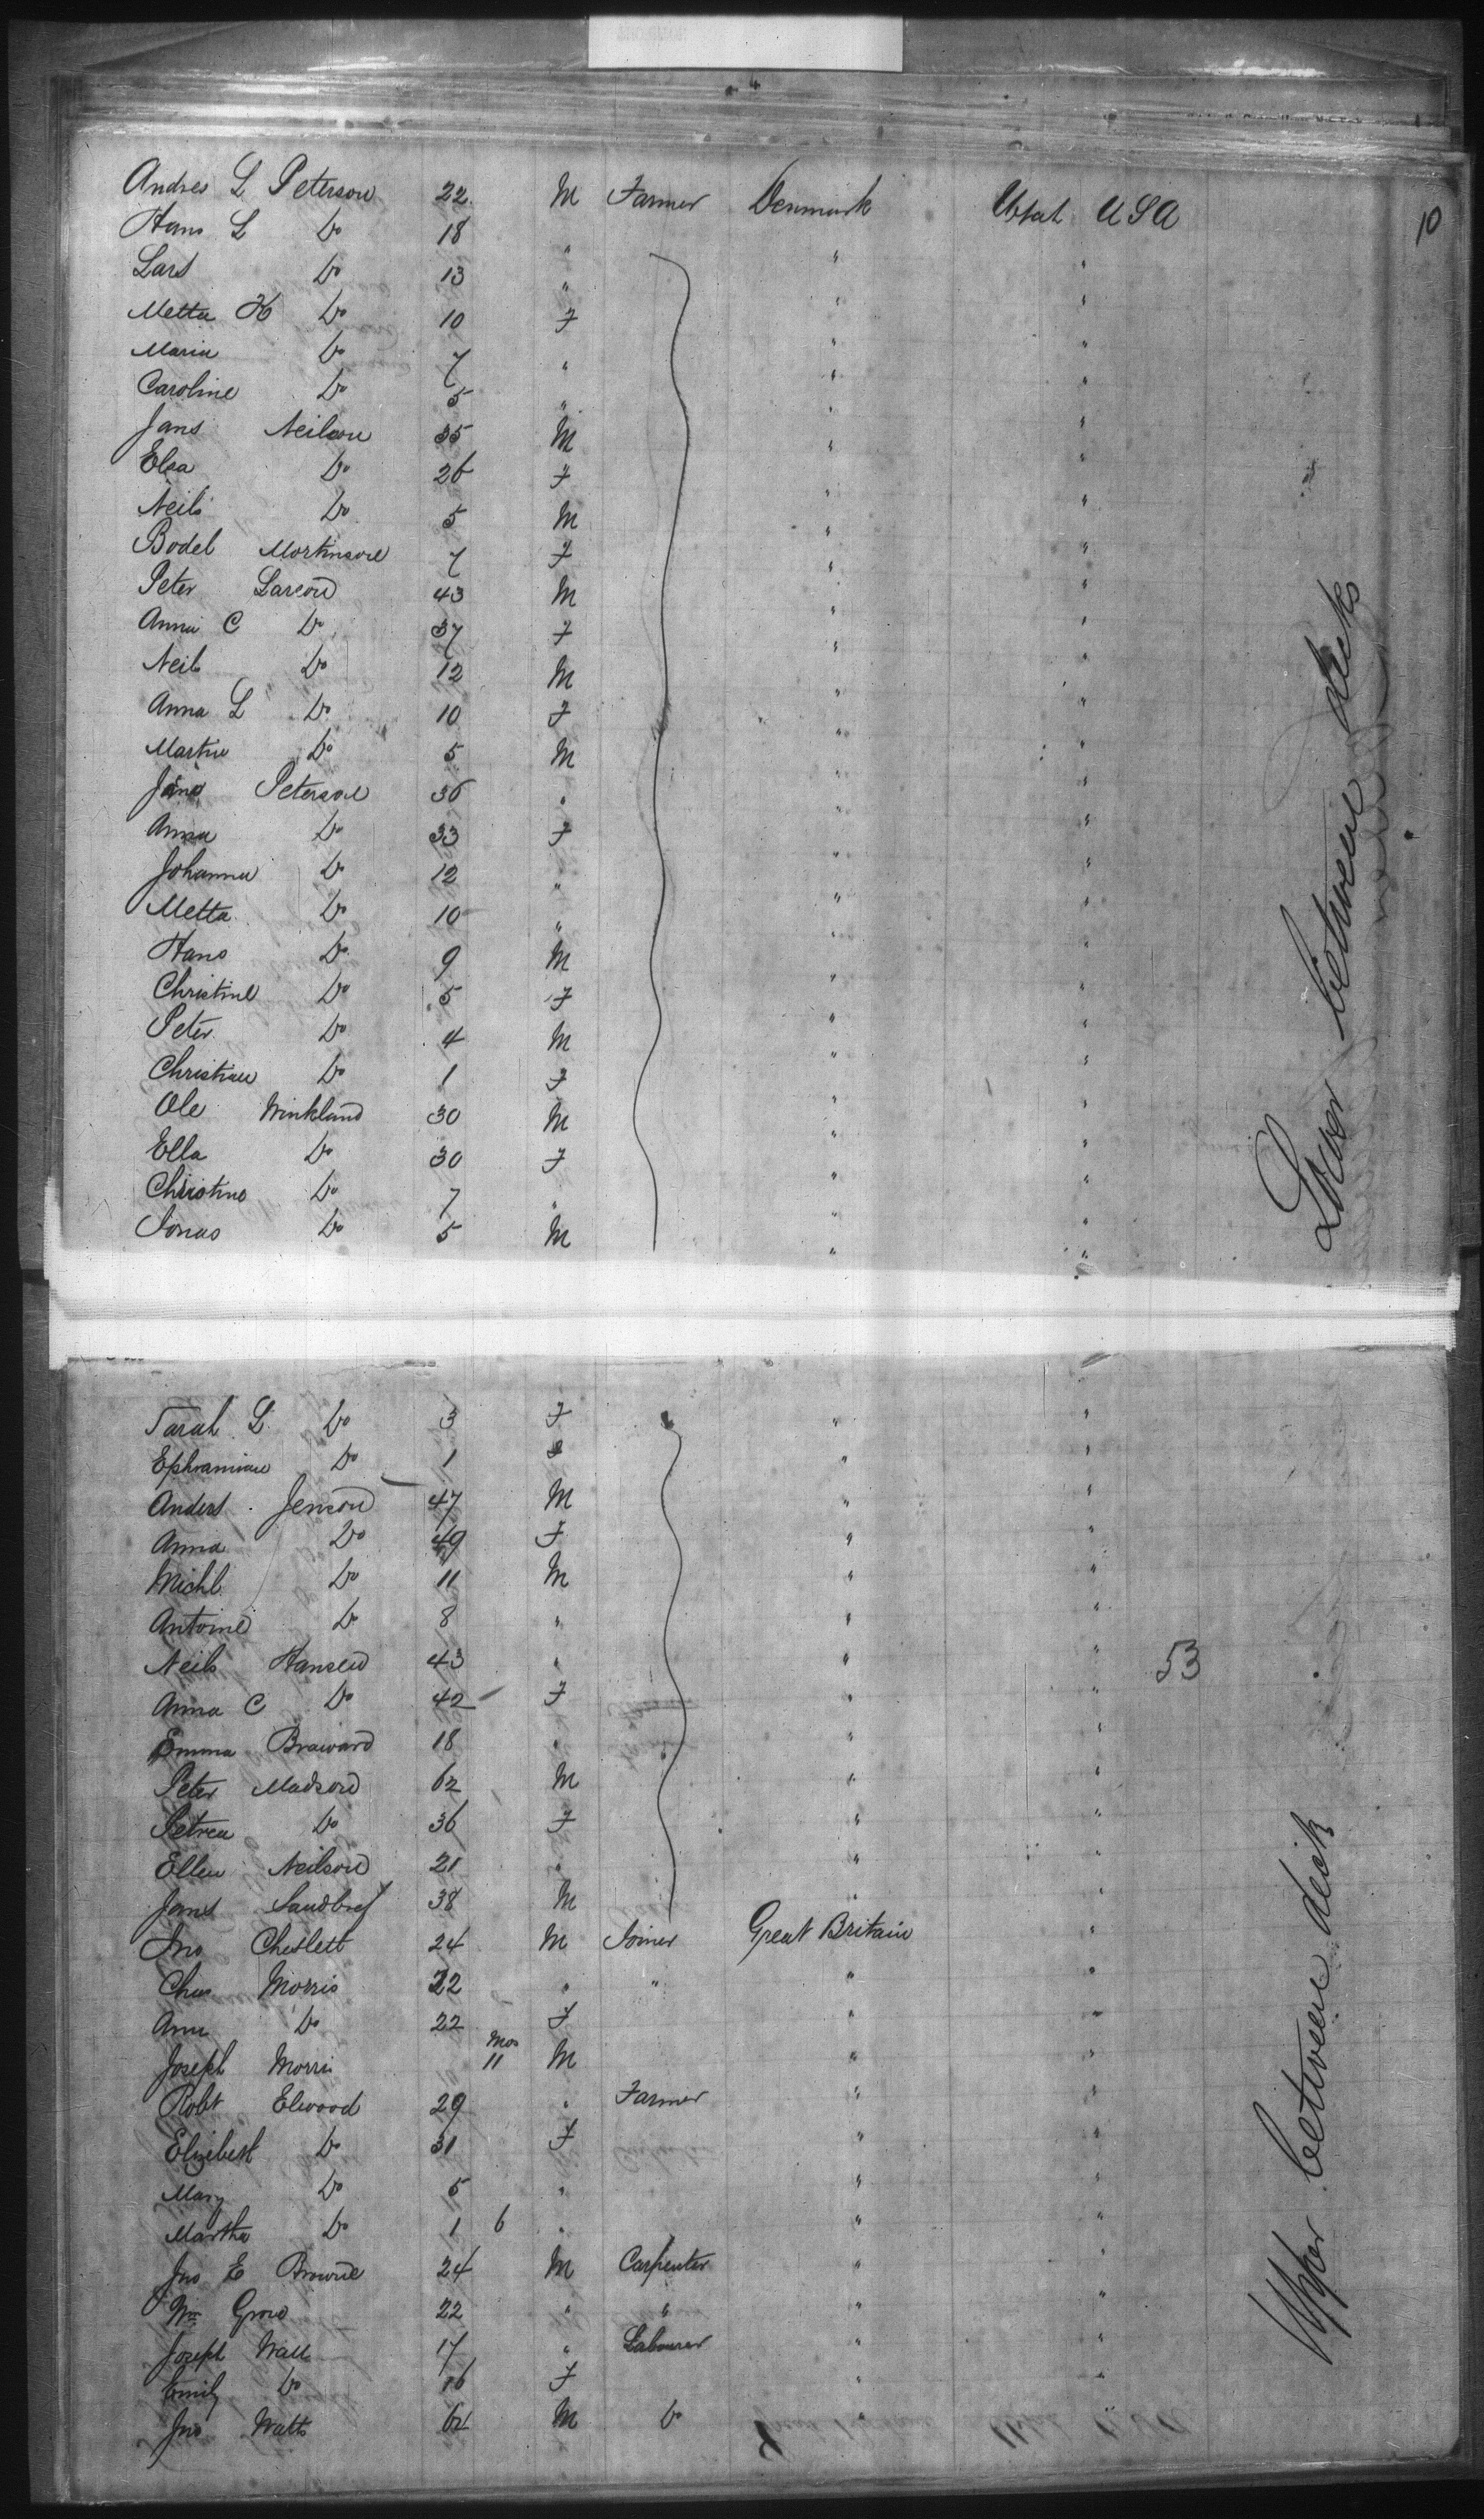 10
Andres L Peterson 22 M Farmer Denmark Utah USA
Hans L Do 18 " " "
Lars Do 13 " " "
Metta K Do 10 F " "
Maria Do 7 " " "
Caroline Do 5 " " "
Jans Neilson 35 M " "
Elsa Do 26 F " "
Neils Do 5 M " "
Bodel Mortinson 7 F " "
Peter Larson 43 M " "
Anna C Do 37 F " "
Neils Do 12 M " "
Anna L Do 10 F " "
Martin Do 5 M " "
Jans Peterson 36 " " "
Anna Do 33 F " "
Johanna Do 12 " " "
Metta Do 10 " " "
Hans Do 9 M " "
Christine Do 5 F " "
Peter Do 4 M " "
Christian Do 1 F " "
Ole Winkland 30 M " "
Ella Do 30 F " "
Christine Do 7 " " "
Jonas Do 5 M " "
Lower between decks
Sarah L Do 3 F " "
Do 1 " "
Anders Jenson 47 M " "
Anna Do 49 F " "
Michl Do 11 M " "
Antoine Do 8 " " "
Neils Hansen 43 " " " 53
Anna C Do 42 F " "
Emma 18 " " "
Peter Madson 62 M " "
Petrea Do 36 F " "
Ellen Neilson 21 " " "
38 M " "
Jno Cheslett 24 M Joiner Great Britain "
Chas Morris 22 " " " "
Ann Do 22 F " "
Joseph Morris Mos 11 M " "
Robt Elwood 29 " Farmer " "
Elizibeth Do 31 F " "
Mary Do 5 " " "
Martha Do 1 6 " " "
Jno E Browne 24 M Carpenter " "
Wm 22 " " " "
Joseph Wall 17 " Labourer " "
Emily Do 16 F " "
Jno Watts 62 M Do "
Upper between deck